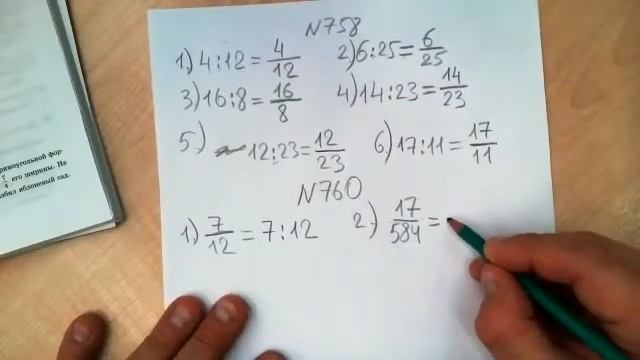 N758
1) 4:12 = 4/12 2) 6:25 = 6/25
3) 16:8 = 16/8 4) 14:23 = 14/23
5) 12:23 = 12/23 6) 17:11 = 17/11
N760
1) 7/12 = 7:12 2) 17/584 =
рямоугольной фор-
7/4 его ширины. На
яблоневый сад.